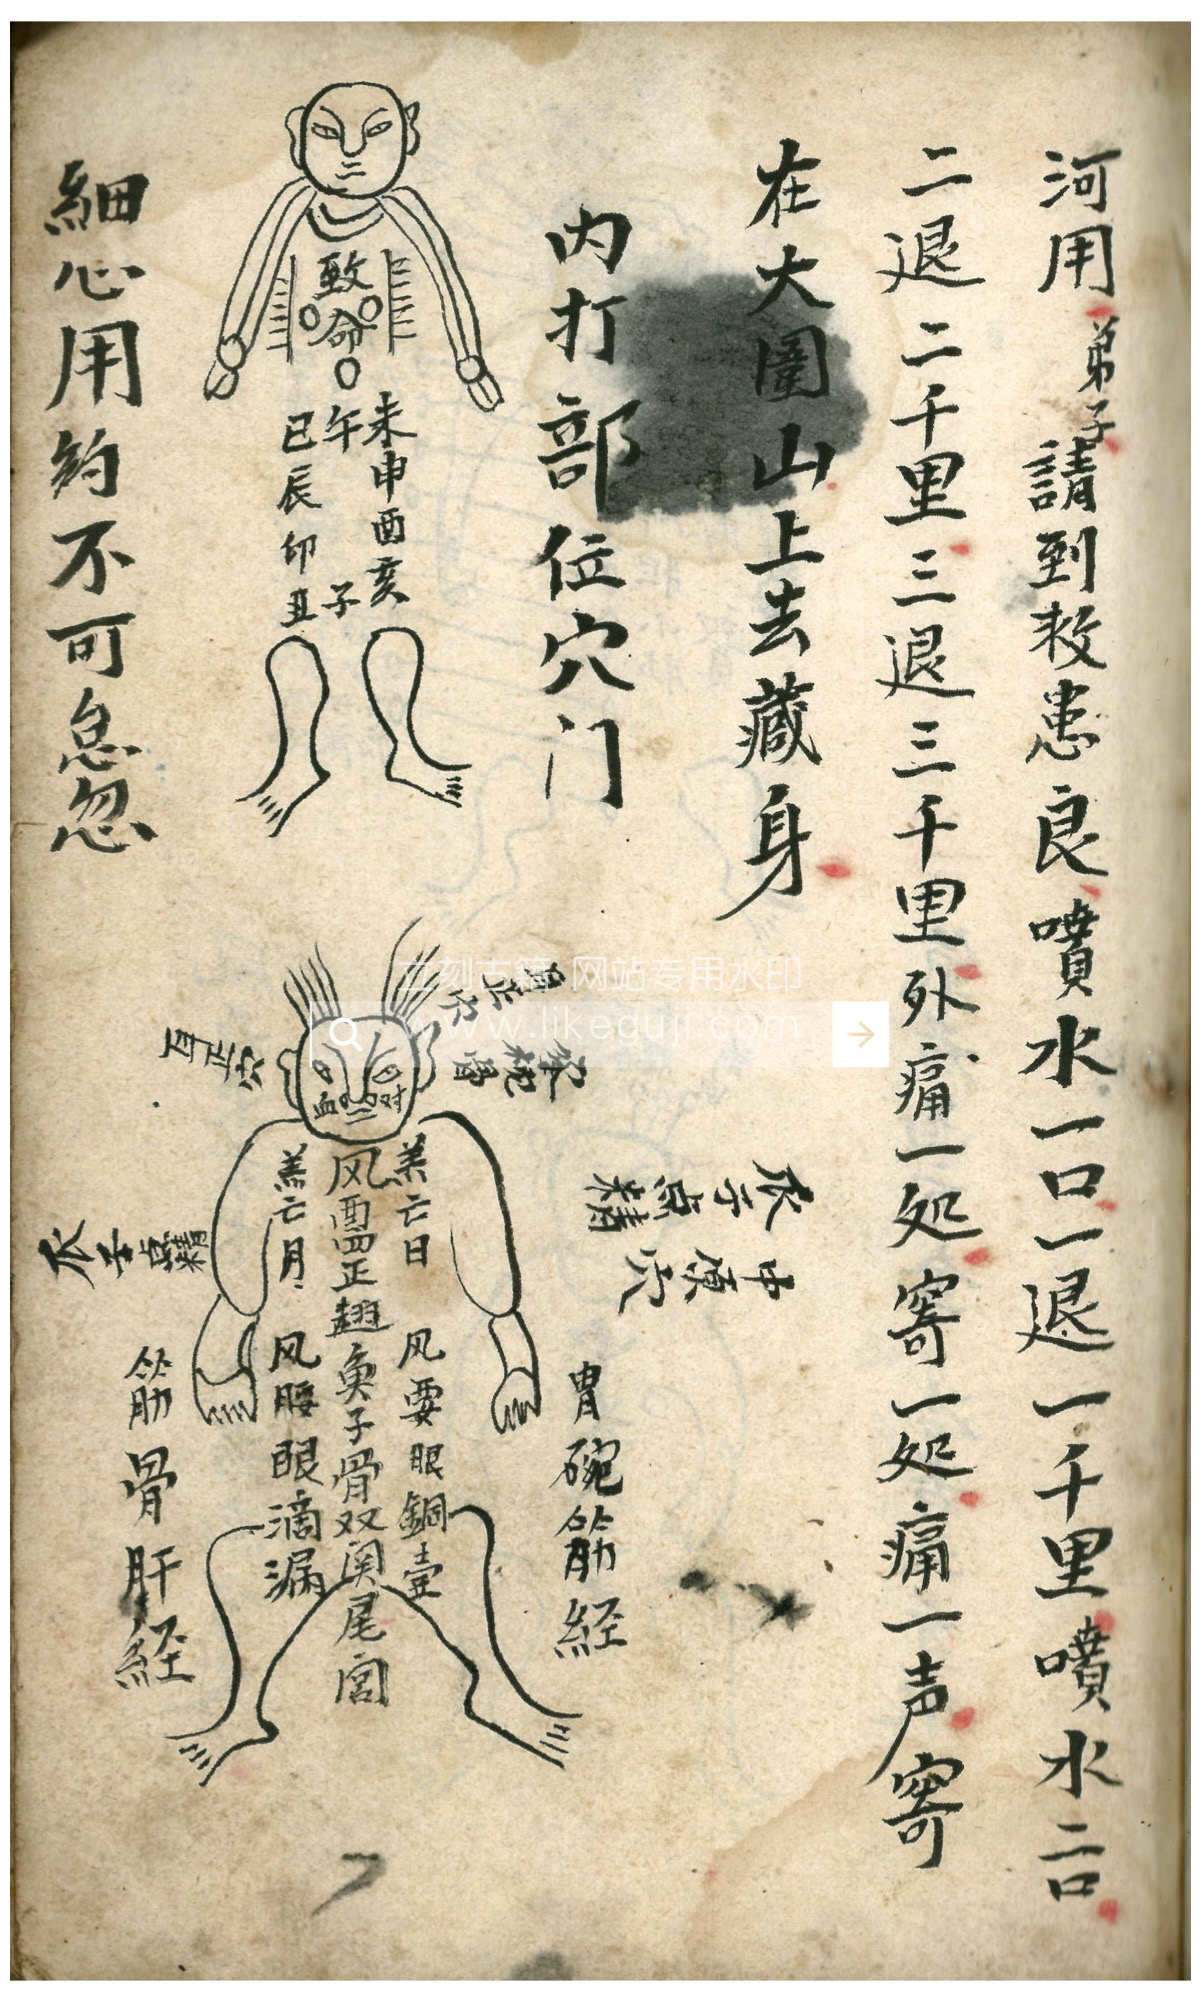 河用弟子請到救患良噴水一口一退一千里噴水二口
二退二千里三退三千里外痛一処寄一処痛一声寄
在大圍山上去藏身
内打部位穴门
致命
未申酉亥
午
子
巳辰卯丑
細心用約不可怠忽
耳正穴
羔亡日
羔亡月
风要眼銅壹
风腰眼滴漏
双関尾宫
胃碗筋経
筋骨肝経
立刻古籍 网站专用水印
www.likeguji.com